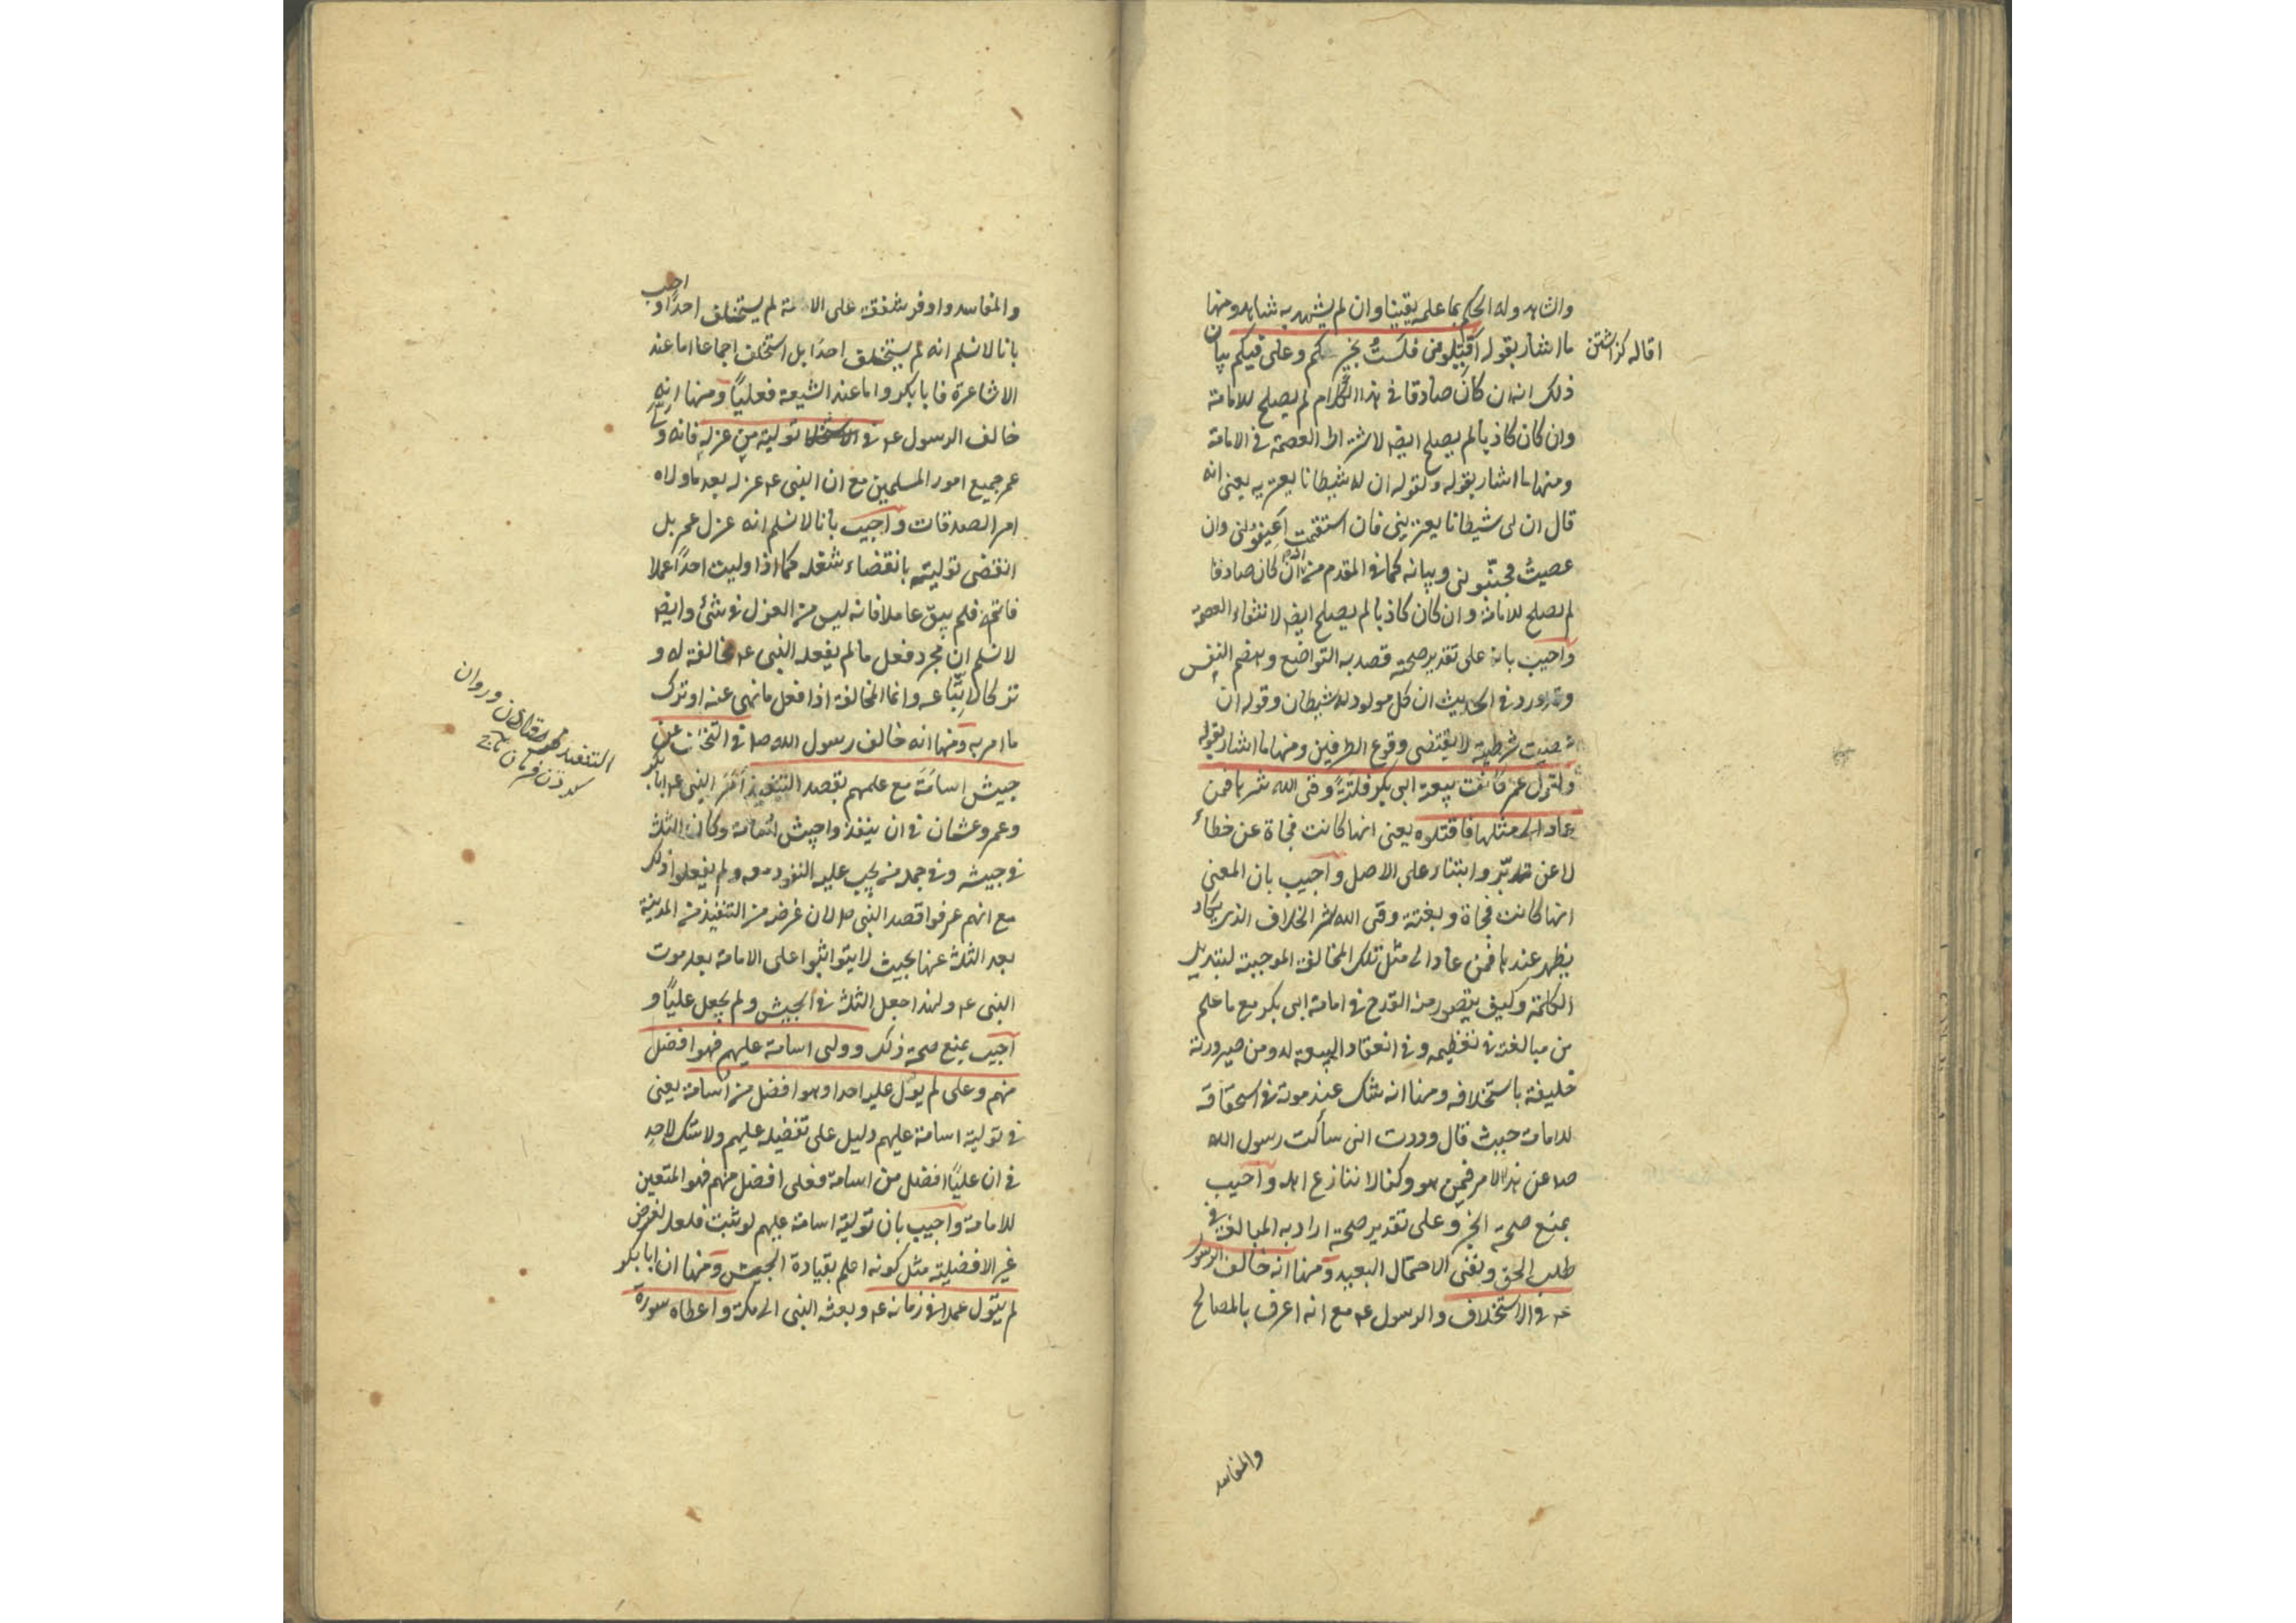 والشاهد وله الحكم بما علمه يقينا وان لم يشهد به شاهد ومنها
ما اشار بقوله اقيلونى فلست بخيركم وعلى فيكم بيان
اقاله كزاشتن
ذلك انه ان كان صادقا فى هذا الكلام لم يصلح للامامة
وان كان كاذبا لم يصلح ايضا لاشتراط العصمة فى الامامة
ومنها ما اشار بقوله ولقوله ان له شيطانا يعتريه يعنى انه
قال ان لى شيطانا يعترينى فان استقمت اعينونى وان
عصيت فجنبونى وبيانه كما فى المقدم من انه ان كان صادقا
لم يصلح للامامة وان كان كاذبا لم يصلح ايضا لانتفاء العصمة
واجيب بانه على تقدير صحته قصد به التواضع وهضم النفس
وقد ورد فى الحديث ان كل مولود له شيطان وقوله ان
عصيت شرطية لا يقتضى وقوع الطرفين ومنها ما اشار بقوله
ولقول عمر كانت بيعة ابى بكر فلتة وقى الله شرها فمن
عاد الى مثلها فاقتلوه يعنى انها كانت فجاة عن خطاء
لا عن تدبر وابتناء على الاصل واجيب بان المعنى
انها كانت فجاة وبغتة وقى الله شر الخلاف الذى يكاد
يظهر عندها فمن عاد الى مثل تلك المخالفة الموجبة لتبديل
الكلمة وكيف يتصور منه القدح فى امامة ابى بكر مع ما علم
من مبالغته فى تعظيمه وفى انعقاد البيعة له ومن صيرورته
خليفة باستخلافه ومنها انه شك عند موته فى استحقاقه
للامامة حيث قال وددت انى سألت رسول الله
صلا عن هذا الامر فيمن هو وكنا لا ننازع اهله واجيب
بمنع صحة الخبر وعلى تقدير صحته اراد به المبالغة فى
طلب الحق ونفى الاحتمال البعيد ومنها انه خالف الرسول
عم فى الاستخلاف والرسول عم مع انه اعرف بالمصالح
والمفاسد
والمفاسد واوفر شفقة على الامة لم يستخلف احدا واجيب
بانا لا نسلم انه لم يستخلف احدا بل استخلف اجماعا اما عند
الاشاعرة فابا بكر واما عند الشيعة فعليا ومنها انه
خالف الرسول عم فى تولية من عزله فانه ولى
عمر جميع امور المسلمين مع ان النبى عم عزله بعد ما ولاه
امر الصدقات واجيب بانا لا نسلم انه عزل عمر بل
انقضى توليته بانقضاء شغله كما اذا وليت احدا عملا
فاتمه فلم يبق عاملا فانه ليس من العزل فى شئ وايضا
لا نسلم ان مجرد فعل ما لم يفعله النبى عم مخالفة له و
تركا لاتباعه وانما المخالفة اذا فعل ما نهى عنه او ترك
ما امر به ومنها انه خالف رسول الله صلا فى التخلف عن
جيش اسامة مع علمهم بقصد التنفيذ امر النبى عم ابا بكر
وعمر وعثمان فى ان ينفذوا جيش اسامة وكان الثلث
فى جيشه وفى جملة من يجب عليه النفوذ معه ولم يفعلوا ذلك
مع انهم عرفوا قصد النبى صلا لان غرضه من التنفيذ من المدينة
بعد الثلث عنها بحيث لا يتواثبوا على الامامة بعد موت
النبى عم ولهذا جعل الثلث فى الجيش ولم يجعل عليا و
اجيب بمنع صحة ذلك وولى اسامة عليهم فهو افضل
منهم وعلى لم يول عليه احدا وهو افضل من اسامة يعنى
فى تولية اسامة عليهم دليل على تفضيله عليهم ولا شك لاحد
فى ان عليا افضل من اسامة فعلى افضل منهم فهو المتعين
للامامة واجيب بان تولية اسامة عليهم لو ثبت فلعله لغرض
غير الافضلية مثل كونه اعلم بقيادة الجيش ومنها ان ابا بكر
لم يتول عملا فى زمانه عم وبعثه النبى الى مكة واعطاه سورة